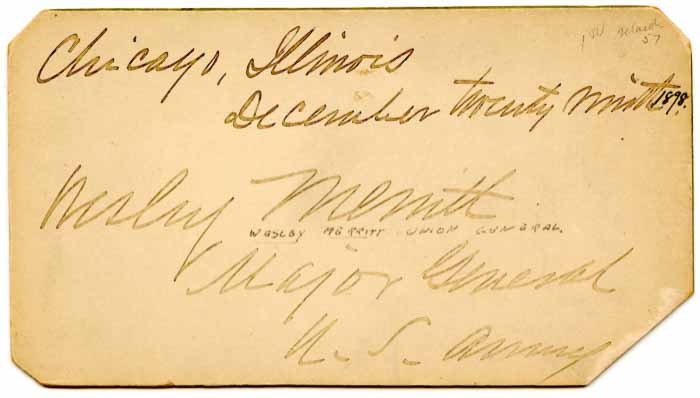 Chicago, Illinois
December twenty ninth 1898.
Wesley Merritt
WESLEY MERRITT UNION GENERAL.
Major General
U. S. Army
57